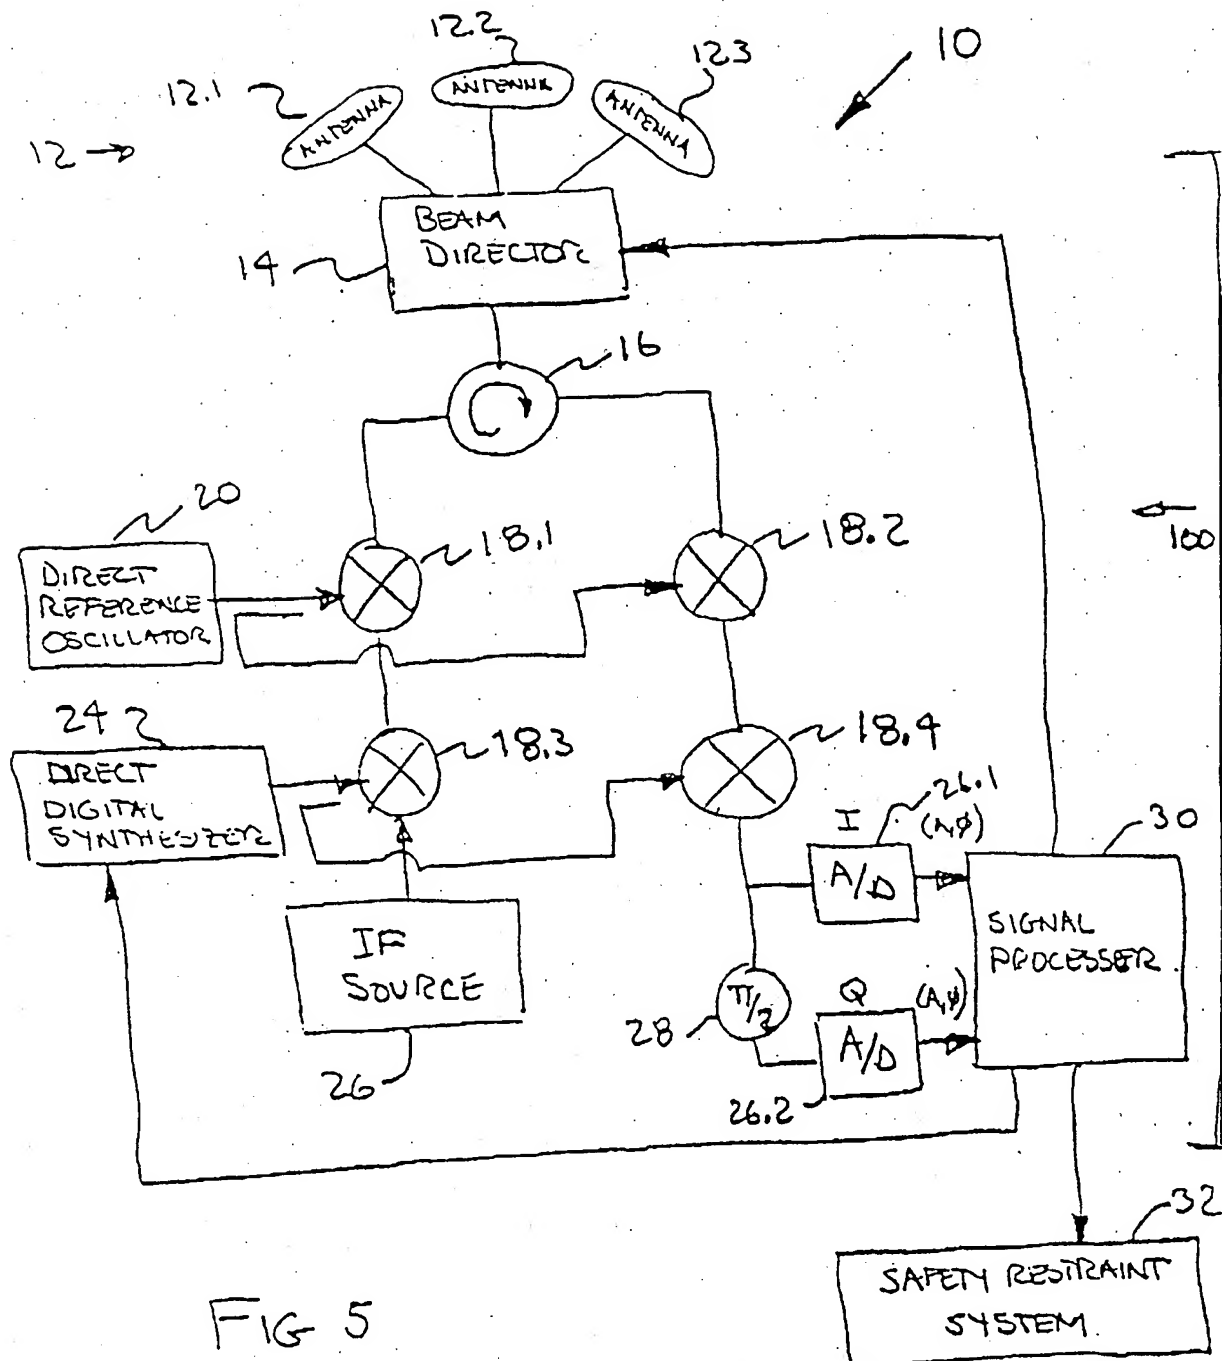 12.2
10
12.1
12.3
ANTENNA
ANTENNA
ANTENNA
12
BEAM
DIRECTOR
14
16
20
18.1
18.2
100
DIRECT
REFERENCE
OSCILLATOR
24
18.3
18.4
DIRECT
DIGITAL
SYNTHESIZER
26.1
I
(A,φ)
30
A/D
IF
SOURCE
SIGNAL
PROCESSER
π/2
Q
(A,φ)
28
A/D
26
26.2
32
SAFETY RESTRAINT
SYSTEM.
FIG 5